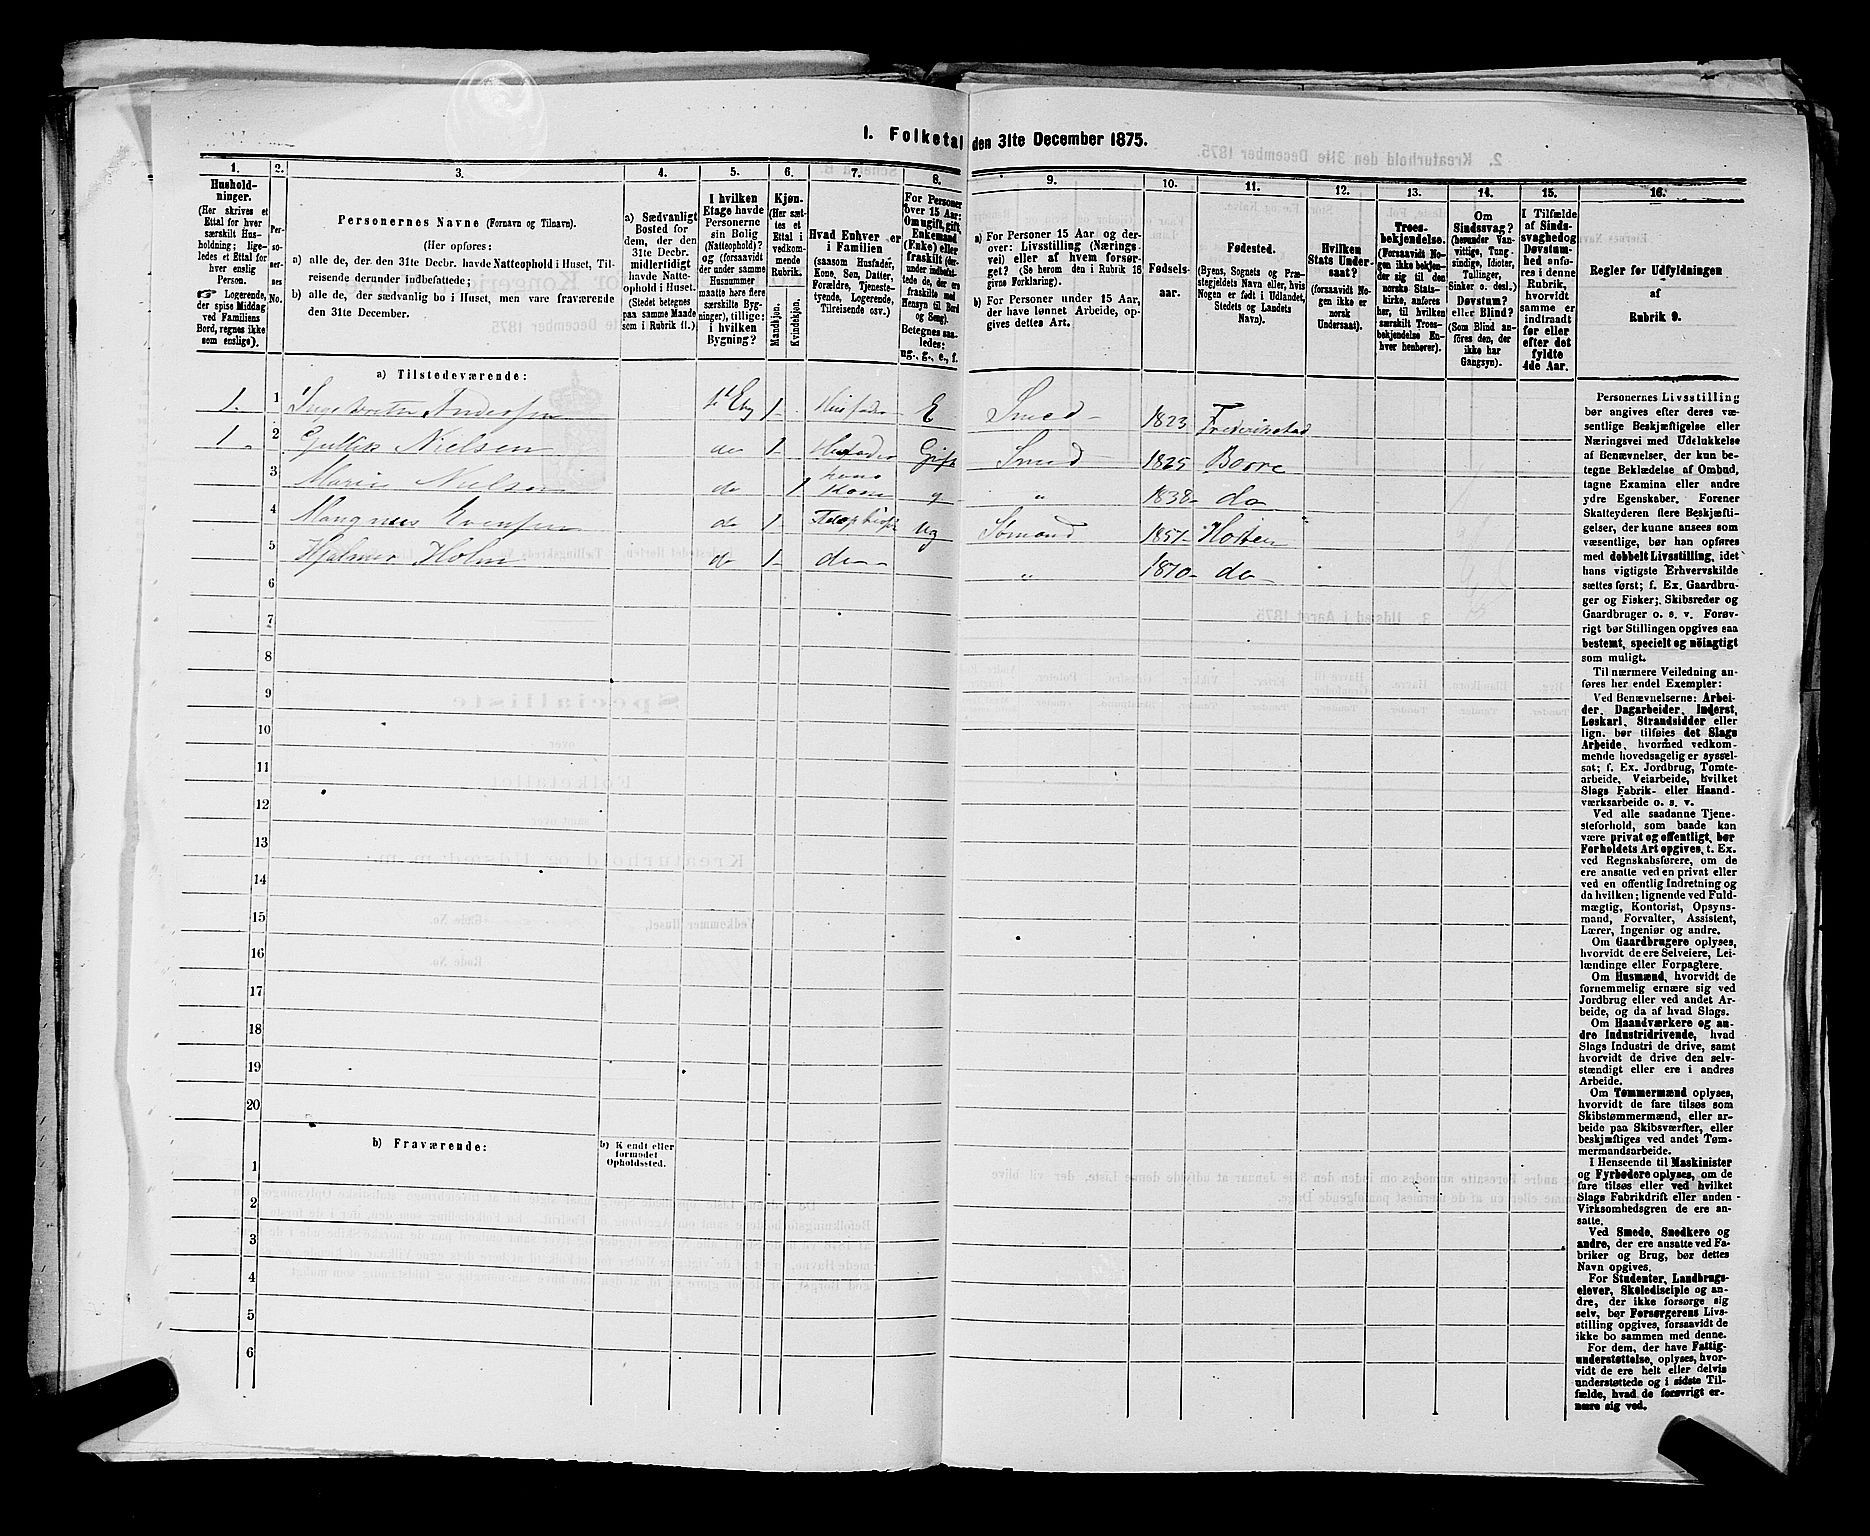 1. Folketal den 31te December 1875.
1.
Hushold-
ninger.
(Her skrives et
Ettal for hver
særskilt Hus-
holdning; lige-
ledes et Ettal for
hver enslig
Person.
Logerende,
der spise Middag
ved Familiens
Bord, regnes ikke
som enslige).
2.
Per-
so-
ner-
nes
No.
3.
Personernes Navne (Fornavn og Tilnavn).
(Her opføres:
a) alle de, der den 31te Decbr. havde Natteophold i Huset, Til-
reisende derunder indbefattede;
b) alle de, der sædvanlig bo i Huset, men vare fraværende
den 31te December.
4.
a) Sædvanligt
Bosted for
dem, der den
31te Decbr.
midlertidigt
havde Natte-
ophold i Huset.
(Stedet betegnes
paa samme Maade
som i Rubrik 11.)
5.
I hvilken
Etage havde
Personerne
sin Bolig
(Natteophold)?
og (forsaavidt
der under samme
Husnummer
maatte høre flere
særskilte Byg-
ninger), tillige:
i hvilken
Bygning?
6.
Kjøn.
(Her sæt-
tes et
Ettal i
vedkom-
mende
Rubrik.
Mandkjøn.
Kvindekjøn.
7.
Hvad Enhver er
i Familien
(saasom Husfader,
Kone, Søn, Datter,
Forældre, Tjeneste-
tyende, Logerende,
Tilreisende osv.)
8.
For Personer
over 15 Aar:
Om ugift, gift,
Enkemand
(Enke) eller
fraskilt
Betegnes saa-
ledes:
ug., g., e., f.
9.
a) For Personer 15 Aar og der-
over: Livsstilling (Nærings
vei) eller af hvem forsør-
get? (Se herom den i Rubrik 16
givne Forklaring).
b) For Personer under 15 Aar,
der have lønnet Arbeide, op-
gives dettes Art.
10.
Fødsels-
aar.
11.
Fødested.
(Byens, Sognets og Præ-
stegjeldets Navn eller, hvis
Nogen er født i Udlandet,
Stedets og Landets
Navn).
12.
Hvilken
Stats Under-
saat?
(forsaavidt No-
gen ikke er
norsk
Undersaat).
13.
Troes-
bekjendelse.
(Forsaavidt No-
gen ikke bekjen-
der sig til den
norske Stats-
kirke, anføres
her, til hvilken
særskilt Troes-
bekjendelse En-
hver henhører).
14.
Om
Sindssvag?
(herunder Van-
vittige, Tung-
sindige, Idioter,
Tullinger,
Sinker o. desl.)
Døvstum?
eller Blind?
(Som Blind an-
føres den, der
ikke har
Gangsyn).
15.
I Tilfælde
af Sinds-
svaghed og
Døvstum-
hed anfø-
res i denne
Rubrik,
hvorvidt
samme er
indtraadt
før eller
efter det
fyldte
4de Aar.
16.
Regler for Udfyldningen
af
Rubrik 9.
a) Tilstedeværende:
1. 1 Andersen 1 Husfader E Smed 1823 Frederikstad
1. 2 Gullik Nielsen do 1 Husfader Gift Smed 1825 Borre
3 Marie Nielsen do 1 hans Kone g " 1838 do
4 Evensen do 1 ug Sømand 1857 Horten
5 Hjalmer Holm do 1 do " 1870 do
6
7
8
9
10
11
12
13
14
15
16
17
18
19
20
b) Fraværende:
b) Kjendt eller
formodet
Opholdssted.
1
2
3
4
5
6
Personernes Livsstilling
bør angives efter deres væ-
sentlige Beskjæftigelse eller
Næringsvei med Udelukkelse
af Benævnelser, der kun be-
tegne Beklædelse af Ombud,
tagne Examina eller andre
ydre Egenskaber. Forener
Skatteyderen flere Beskjæfti-
gelser, der kunne ansees som
væsentlige, bør han opføres
med dobbelt Livsstilling, idet
hans vigtigste Erhvervskilde
sættes først; f. Ex. Gaardbru-
ger og Fisker; Skibsreder og
Gaardbruger o. s. v. Forøv-
rigt bør Stillingen opgives saa
bestemt, specielt og nøiagtigt
som muligt.
Til nærmere Veiledning an-
føres her endel Exempler:
Ved Benævnelserne: Arbei-
der, Dagarbeider, Inderst,
Løskarl, Strandsidder eller
lign. bør tilføies det Slags
Arbeide, hvormed vedkom-
mende hovedsagelig er syssel-
sat; f. Ex. Jordbrug, Tomte-
arbeide, Veiarbeide, hvilket
Slags Fabrik- eller Haand-
værksarbeide o. s. v.
Ved alle saadanne Tjene-
steforhold, som baade kan
være privat og offentligt, bør
Forholdets Art opgives, t. Ex.
ved Regnskabsførere, om de
ere ansatte ved en privat eller
ved en offentlig Indretning og
da hvilken; lignende ved Fuld-
mægtig, Kontorist, Opsyns-
mand, Forvalter, Assistent,
Lærer, Ingeniør og andre.
Om Gaardbrugere oplyses,
hvorvidt de ere Selveiere, Lei-
lændinge eller Forpagtere.
Om Husmænd, hvorvidt de
fornemmelig ernære sig ved
Jordbrug eller ved andet Ar-
beide, og da af hvad Slags.
Om Haandværkere og an-
dre Industridrivende, hvad
Slags Industri de drive, samt
hvorvidt de drive den selv-
stændigt eller ere i andres
Arbeide.
Om Tømmermænd oplyses,
hvorvidt de fare tilsøs som
Skibstømmermænd, eller ar-
beide paa Skibsværfter, eller
beskjæftiges ved andet Tøm-
mermandsarbeide.
I Henseende til Maskinister
og Fyrbødere oplyses, om de
fare tilsøs eller ved hvilket
Slags Fabrikdrift eller anden
Virksomhedsgren de ere an-
satte.
Ved Smede, Snedkere og
andre, der ere ansatte ved Fa-
briker og Brug, bør dettes
Navn opgives.
For Studenter, Landbrugs-
elever, Skoledisciple og an-
dre, der ikke forsørge sig
selv, bør Forsørgerens Livs-
stilling opgives, forsaavidt de
ikke bo sammen med denne.
For dem, der have Fattig-
understøttelse, oplyses, hvor-
vidt de ere helt eller delvis
understøttede og i sidste Til-
fælde, hvad de forøvrigt er-
nære sig ved.